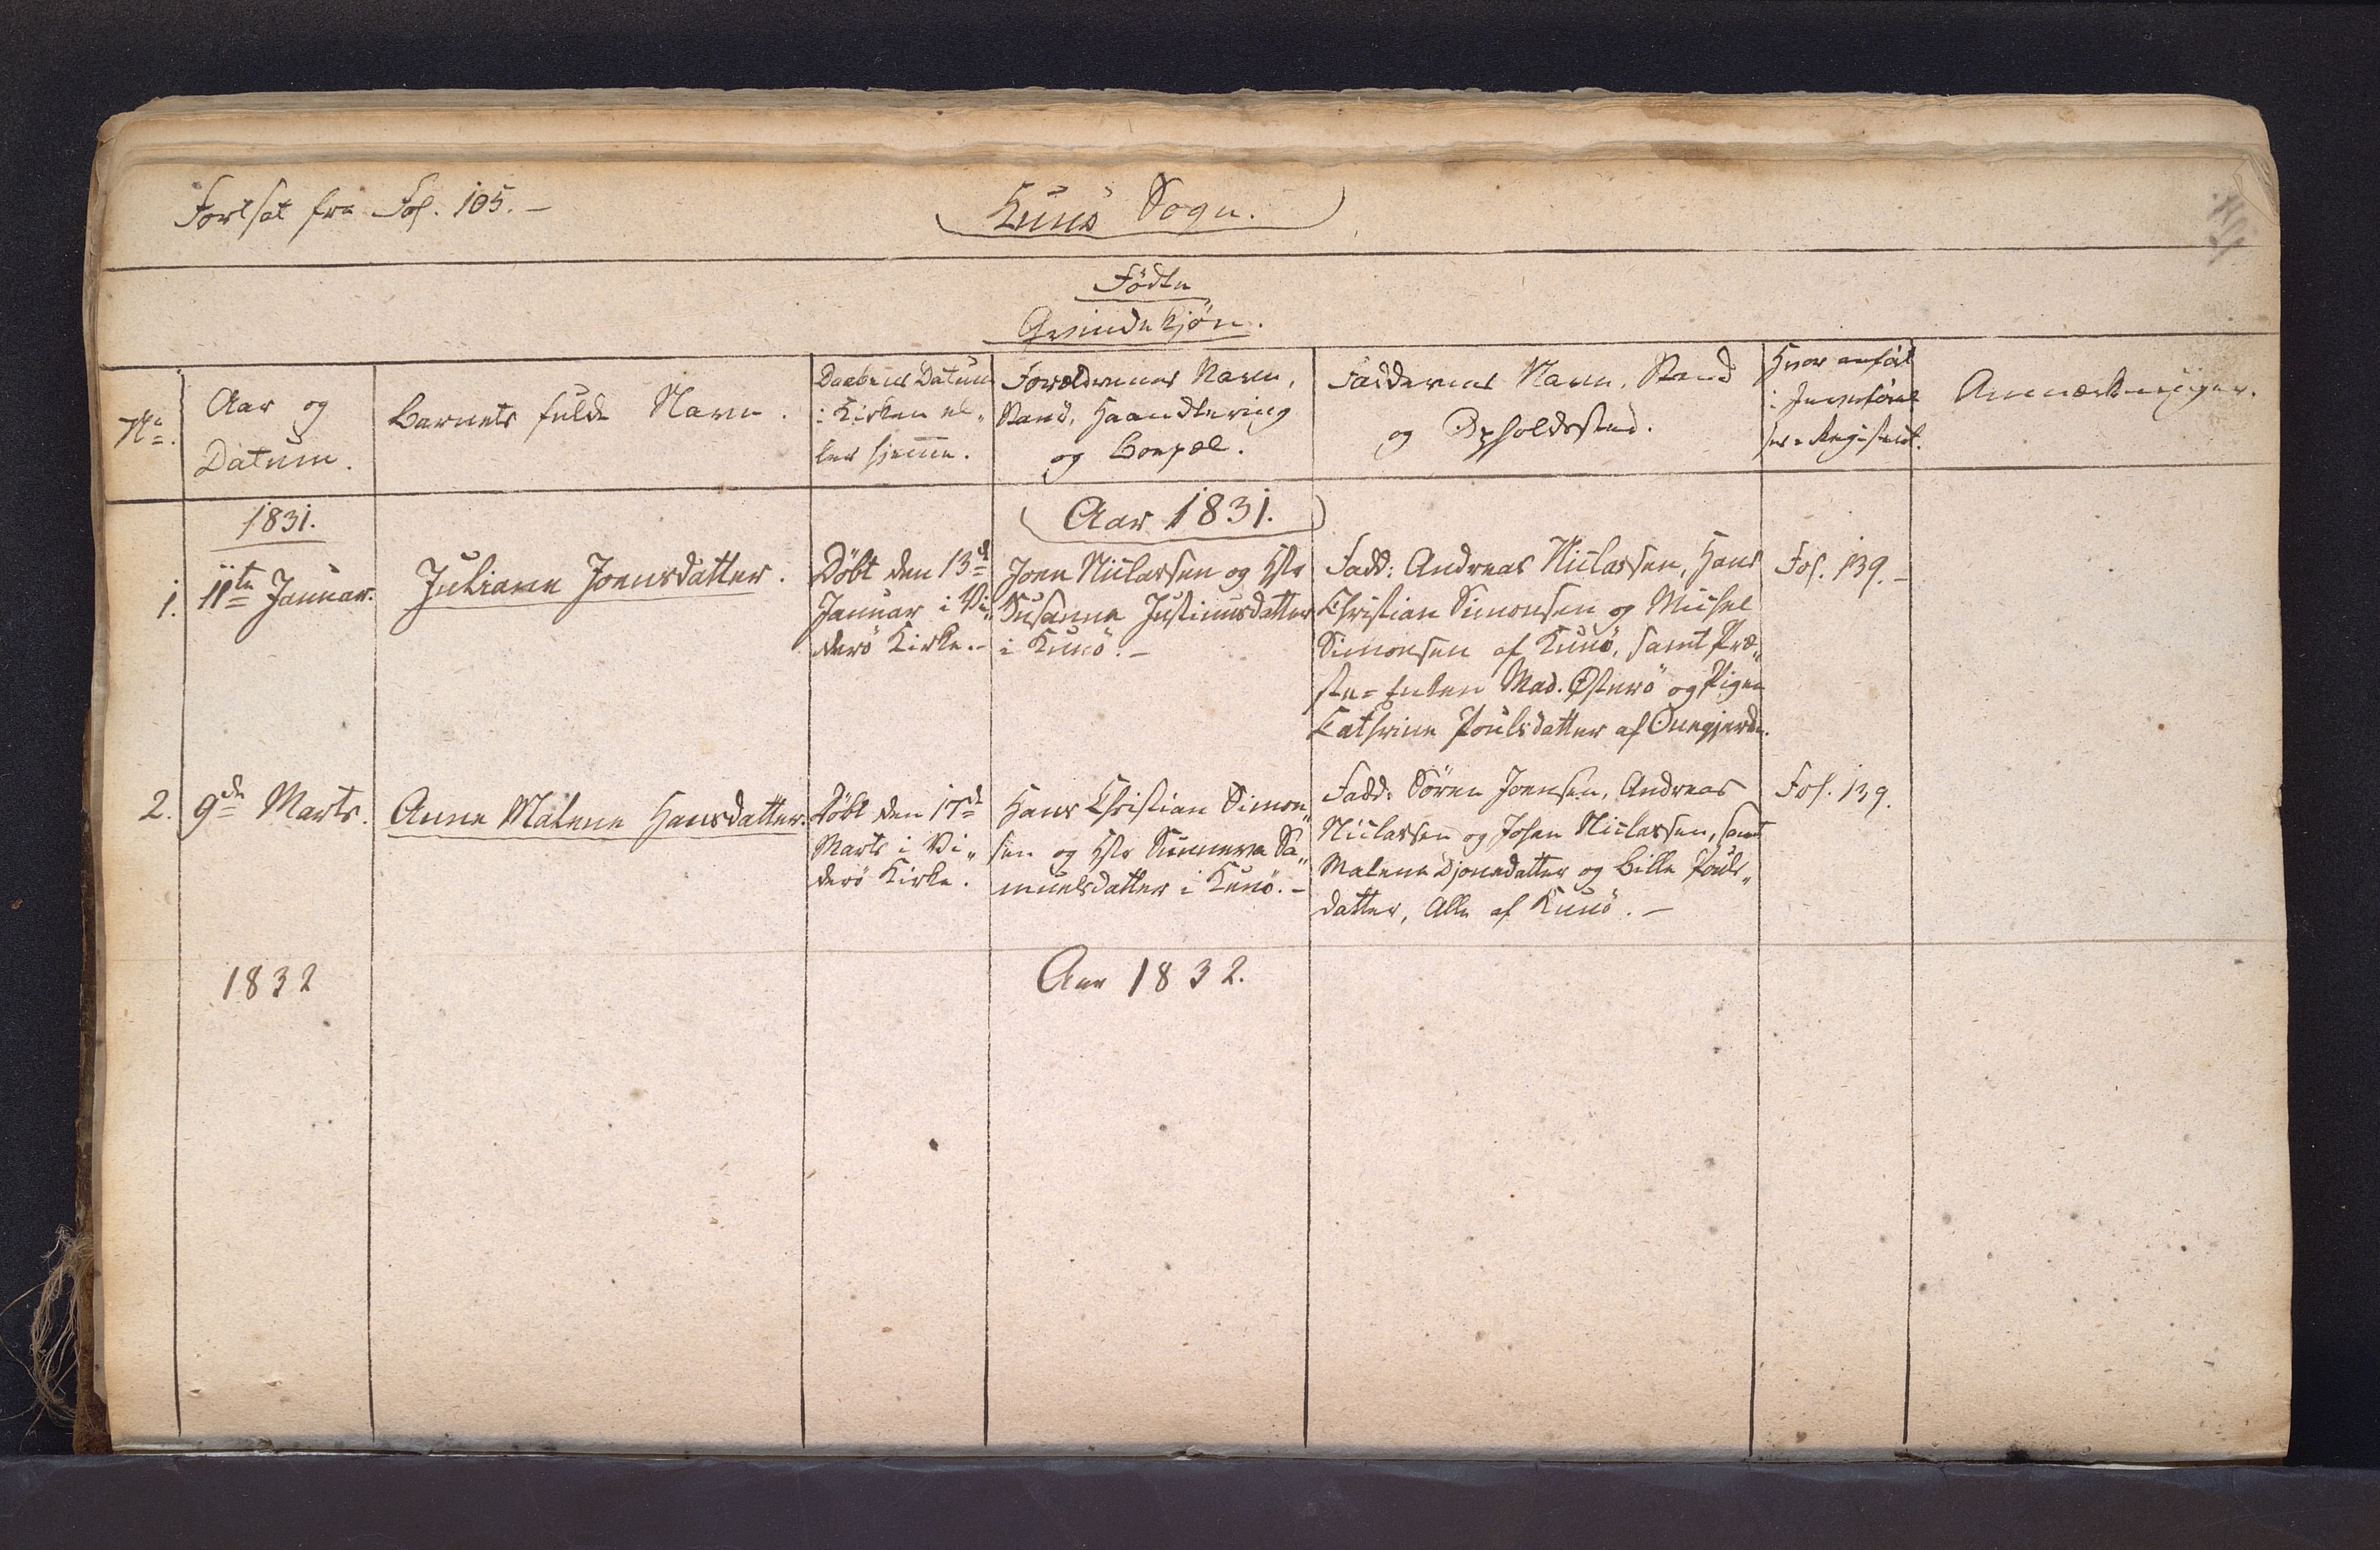 Fortsat fra Fol. 105. –
Kunö Sogn.
Födte
Qvindekjön.
No.
Aar og
Datum.
Barnets fulde Navn.
Daabens Datum
i Kirken el„
ler hjemme.
Forældrenes Navn,
Stand, Haandtering
og Boepæl.
Faddernes Navn, Stand
og Opholdssted.
Hvor anført
i Jevnførel
ses-Registret.
Anmærkninger.
1831.
Aar 1831.
1.
11te Januar.
Juliane Joensdatter.
Döbt den 13de
Januar i Vi„
derö Kirke. –
Joen Niclassen og Hstr
Susanne Justinusdatter
i Kunö. –
Fadd: Andreas Niclassen, Hans
Christian Simonsen og Michel
Simonsen af Kunö, samt Præ„
ste-Enken Mad. Østerö og Pigen
Cathrine Poulsdatter af Onegjerde.
Fol. 139. –
2.
9de Marts.
Anne Malene Hansdatter.
Döbt den 17de
Marts i Vi„
derö Kirke.
Hans Christian Simon„
sen og Hstr Sunneva Sa„
muelsdatter i Kunö. –
Fadd: Sören Joensen, Andreas
Niclassen og Johan Niclassen, samt
Malene Djonedatter og Bille Pouls„
datter, Alle af Kunö. –
Fol. 139.
1832
Aar 1832.